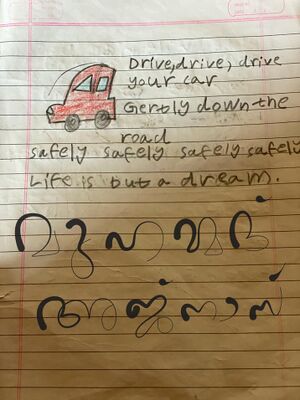 Drive,drive, drive
your car
Gently down the
road
safely safely safely safely
Life is but a dream.
മുഹമ്മദ്
അജ്നാസ്